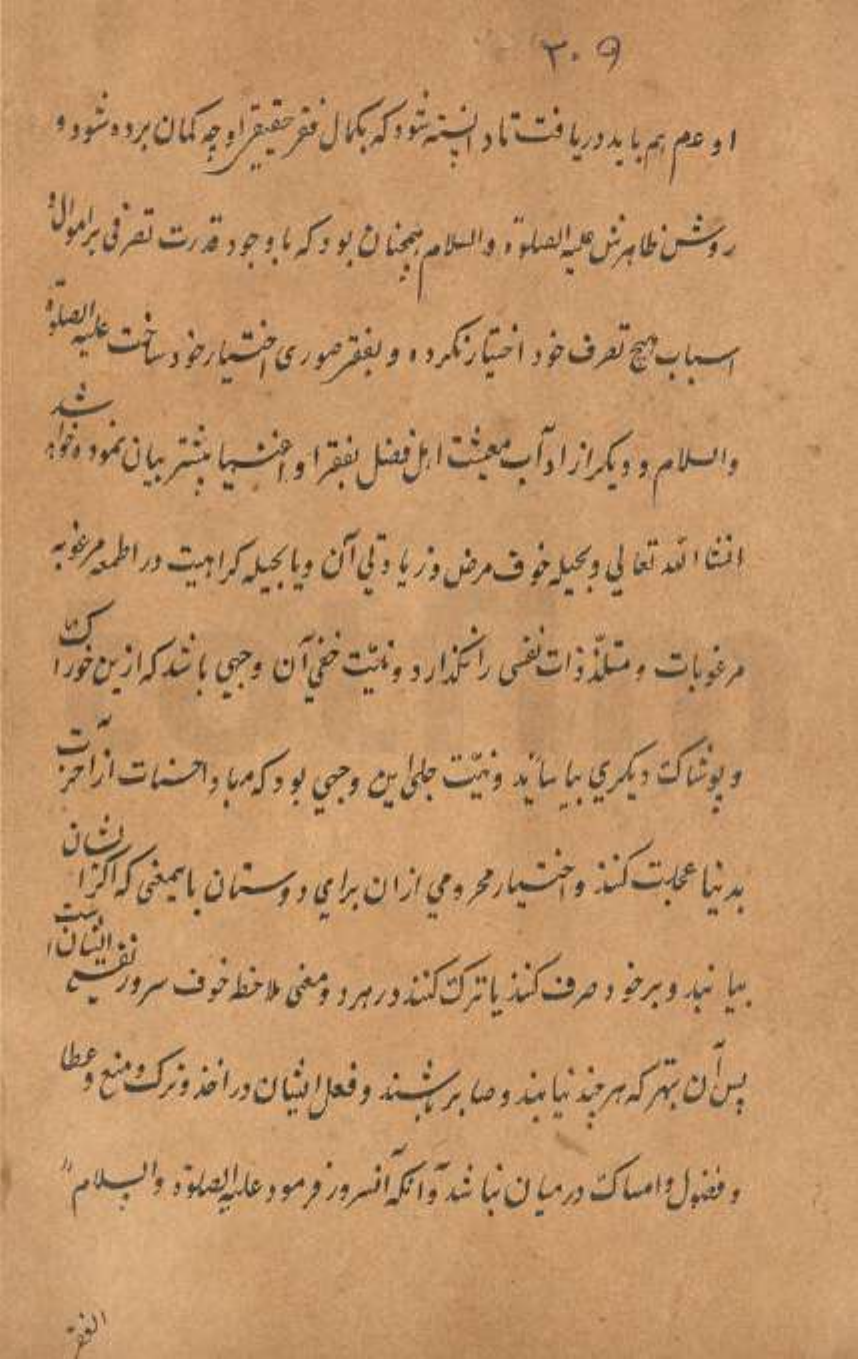 ۲۰۹
او عدم هم باید دریافت تا دانسته شود که بکمال فقر حقیقی او چه کمان برده شود و
روش ظاهرش علیه الصلوة والسلام همچنان بود که با وجود قدرت تصرفی بر اموال و
اسباب هیچ تصرف خود اختیار نکرده و بفقر صوری اختیار خود ساخت علیه الصلوة
والسلام و دیکر از آداب معیشت اهل فضل بفقرا و اغنیا بیشتر بیان نموده خواهد شد
انشاالله تعالی و بحیله خوف مرض و زیادتی آن و یا بحیله کراهیت در اطعمه مرغوبه
مرغوبات و متلذذات نفسی را نکذارد و نیّت خفی آن وجهی باشد که ازین خوراک
و پوشاک دیکری بیاساید و نیّت جلی این وجهی بود که مبادا حسنات از آخرت
بدنیا عجلت کنند و اختیار محرومی ازان برای دوستان باینمعنی که اکر ایشان
بیابند و بر خود صرف کنند یا ترک کنند در هر دو معنی ملاحظه خوف سرور نفس ایشان است
پس آن بهتر که هر چند نیابند و صابر باشند و فعل ایشان در اخذ و ترک و منع و عطا
و فضول و امساک درمیان نباشد و آنکه آنسرور فرمود علیه الصلوة والسلام
الفقر